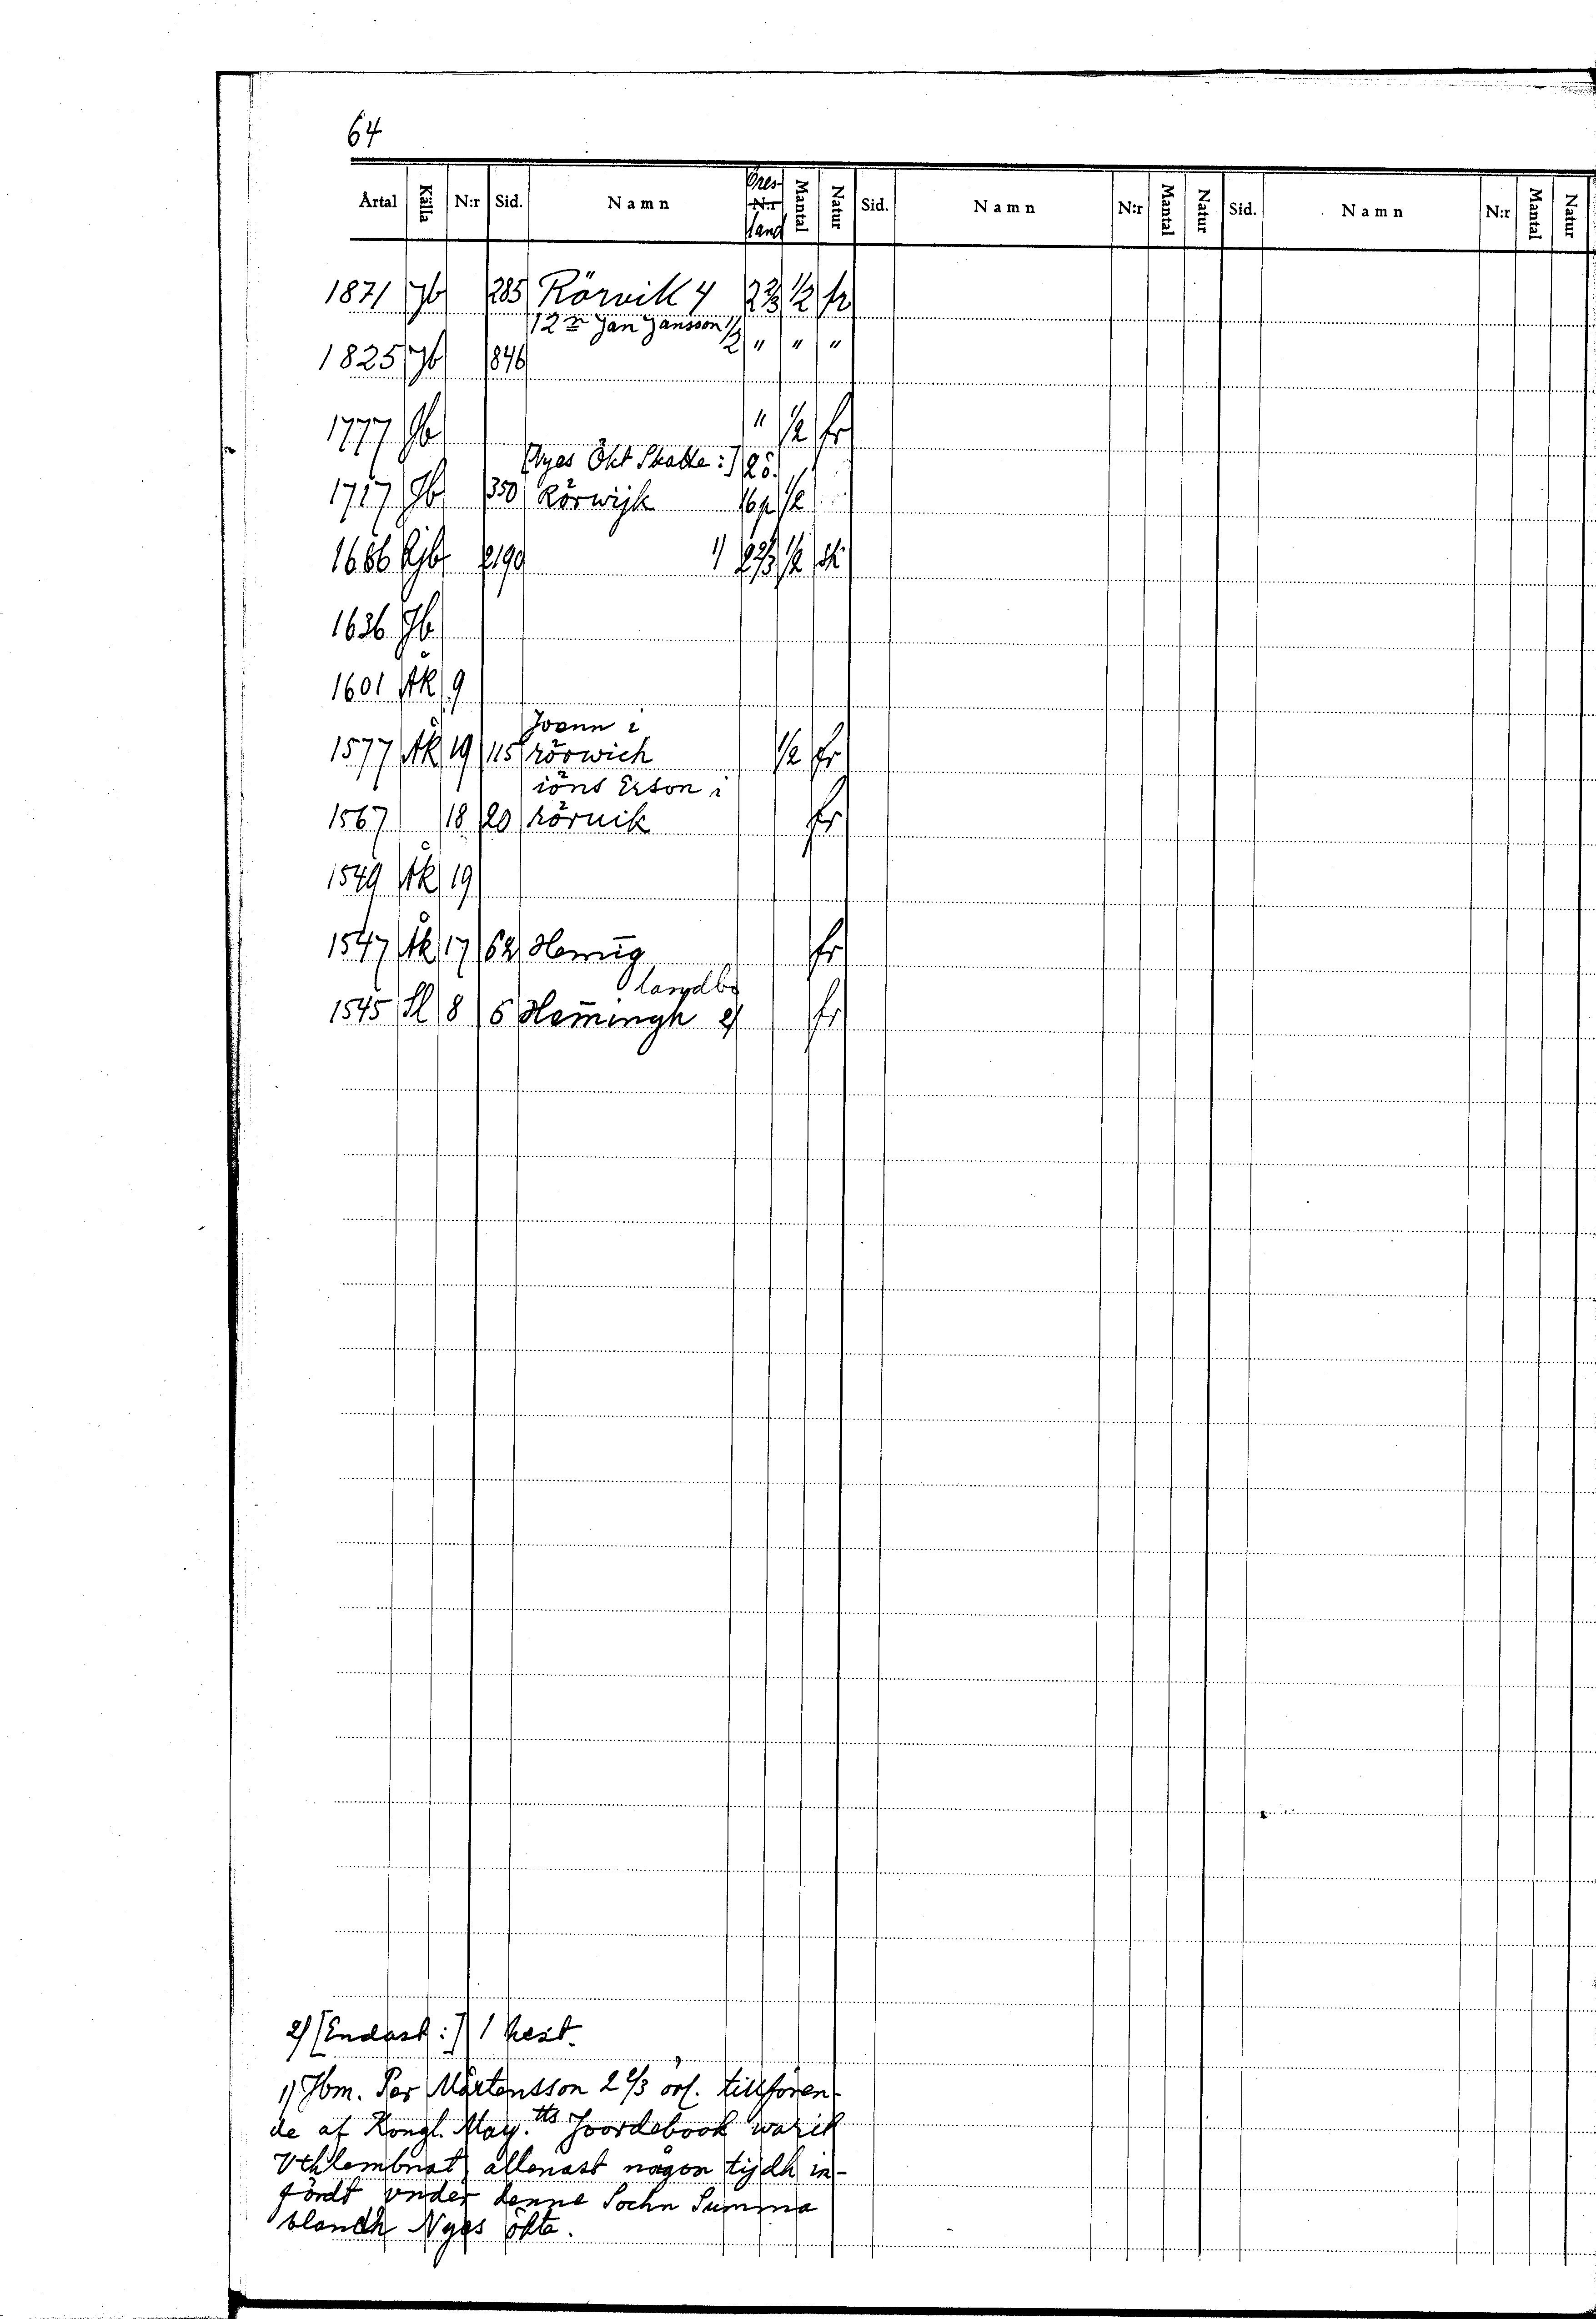 64
Årtal Källa N:r Sid. Namn Öres- N:r land Mantal Natur Sid. Namn N:r Mantal Natur Sid. Namn N:r Mantal Natur
1871 Jb 285 Rörvik 4 2 2/3 1/2 fr
12 Jan Jansson 1/2 " " "
1825 Jb 846
1777 Jb " 1/2 fr
[Nyas Ökt Skatte:] 2 ö.
1717 Jb 350 Rörwijk 16 p 1/2
1686 Rjb 2190 1) 2 2/3 1/2 sk
1636 Jb
1601 Åk 9
Joenn i
1577 Åk 19 115 rörwich 1/2 fr
iöns Erson i
1567 18 20 röruik fr
1549 Åk 19
1547 Åk 17 62 Hem̄ig fr
landbo
1545 Sl 8 6 Hem̄ingh 2) fr
2) [Endast:] 1 hest.
1) Hbm. Per Mårtensson 2 2/3 örl. tillfören-
de af Kongl. May:tts Joordebook warit
Vthlembnat, allenast någon tijdh in-
fördt vnder denne Sochn Summa
blandh Nyas ökta.